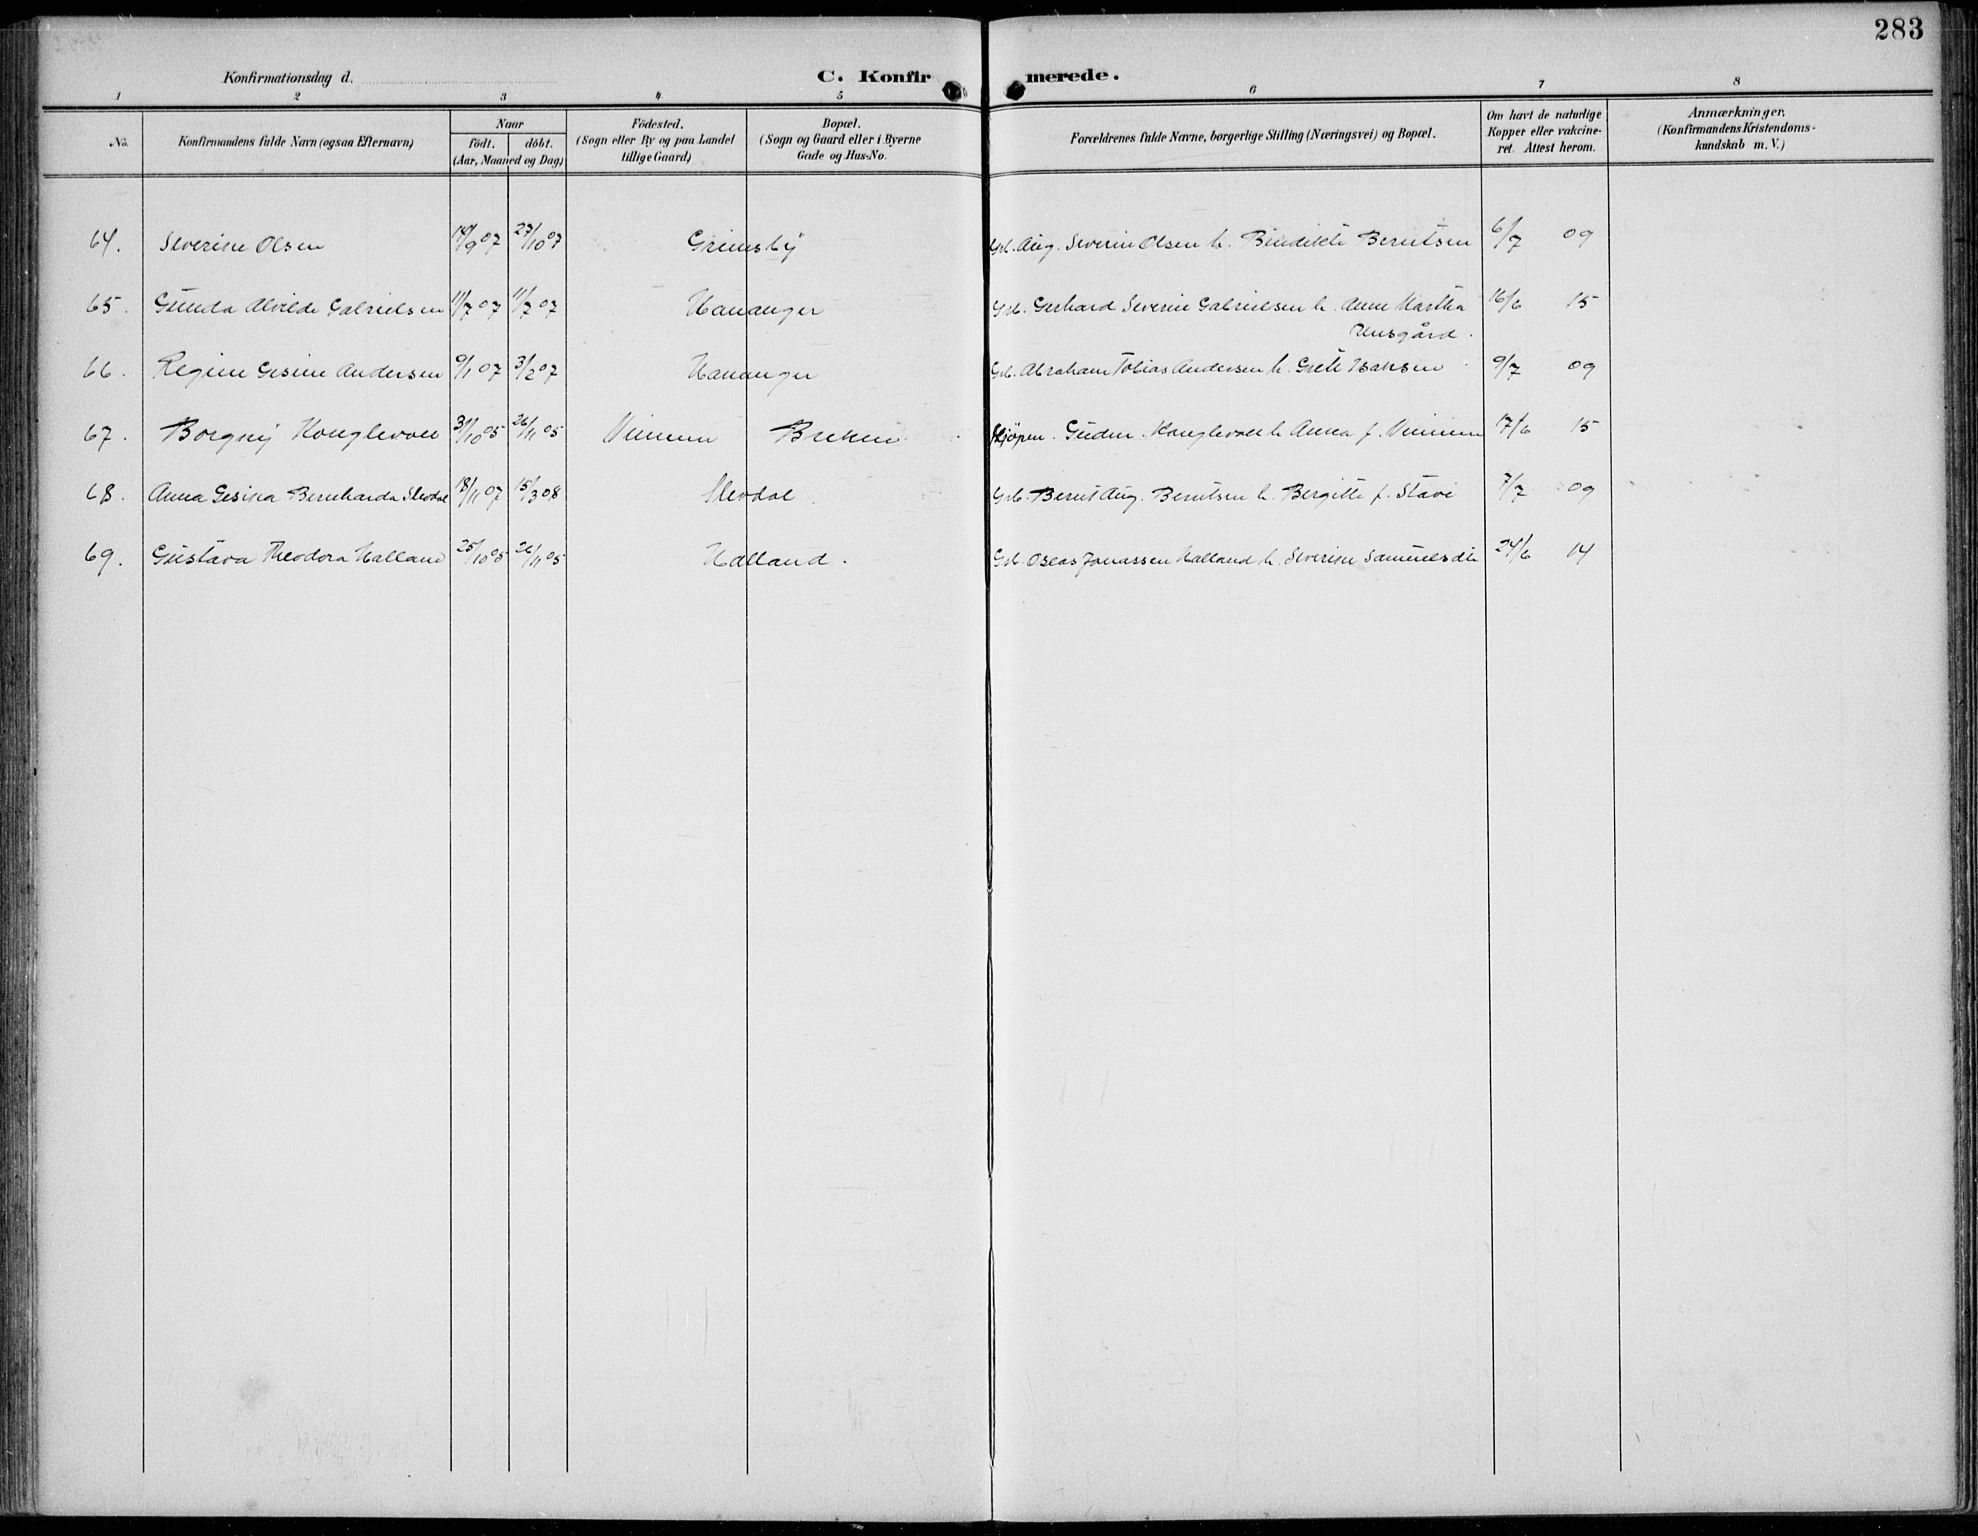 283
Konfirmationsdag d. C. Konfirmerede.
1 2 3 4 5 6 7 8
No. Konfirmandens fulde Navn (ogsaa Efternavn) Naar födt. döbt. (Aar, Maaned og Dag) Födested. (Sogn eller By og paa Landet tillige Gaard) Bopæl. (Sogn og Gaard eller i Byerne Gade og Hus-No. Forældrenes fulde Navne, borgerlige Stilling (Næringsvei) og Bopæl. Om havt de naturlige Kopper eller vakcineret. Attest herom. Anmærkninger. (Konfirmandens Kristendomskundskab m. V.)
64. Severine Olsen 14/9 07 27/10 07 Grimsby Grb. Aug. Severin Olsen h. Bendikte Berntsen 6/7 09
65. Gunda Alvilde Gabrielsen 11/7 07 11/7 07 Hananger Grb. Gerhard Severin Gabrielsen h. Anne Martha 16/6 15
66. Regine Gesine Andersen 9/1 07 3/2 07 Hananger Grb. Abraham Tobias Andersen h. Grete Isaksen 9/7 09
67. Borgny Konglevoll 31/10 05 26/11 05 Vinnum Brekne Kjøpm. Gudm. Konglevoll h. Anna f. Vinnum 17/6 15
68. Anna Gesina Bernharda Slevdal 18/11 07 15/3 08 Slevdal. Grb. Bernt Aug. Berntsen h. Bergitte f. Stave 7/7 09
69. Gustava Theodora Halland 25/10 05 26/11 05 Halland. Grb. Oseas Jonassen Halland h. Severine Samuelsdtr 24/6 14